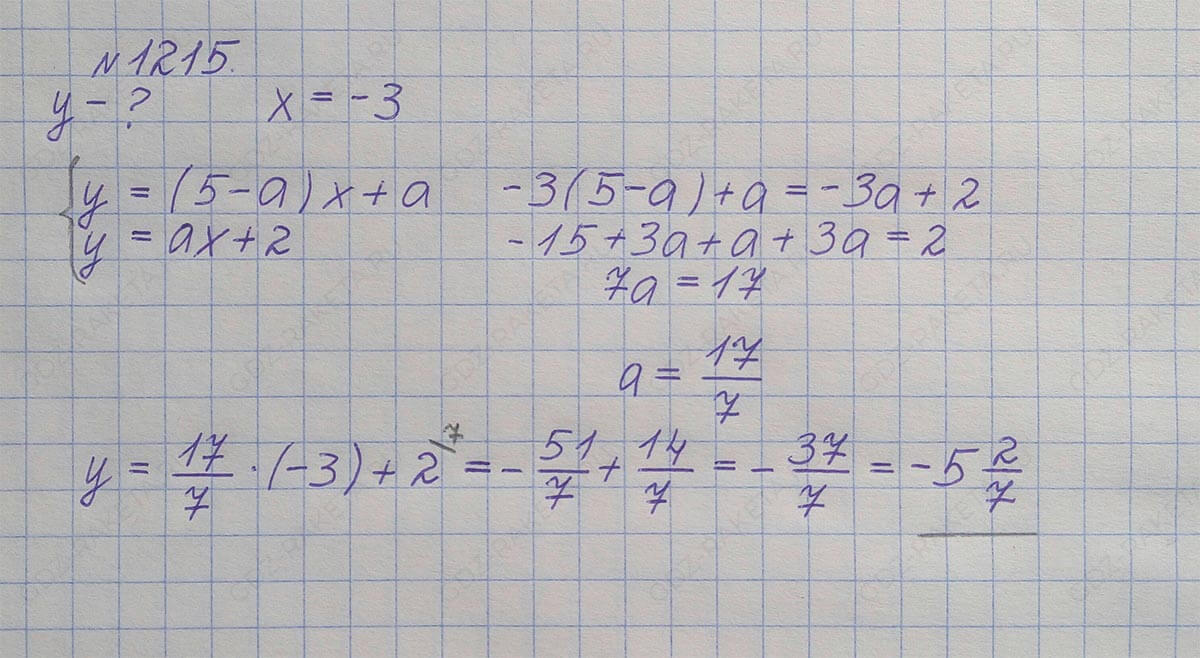 №1215.
y - ? x = -3
y = (5-a)x + a -3(5-a) + a = -3a + 2
y = ax + 2 -15 + 3a + a + 3a = 2
7a = 17
a = 17/7
y = 17/7 · (-3) + 2\7 = - 51/7 + 14/7 = - 37/7 = -5 2/7
GDZ-RAKETA.RU